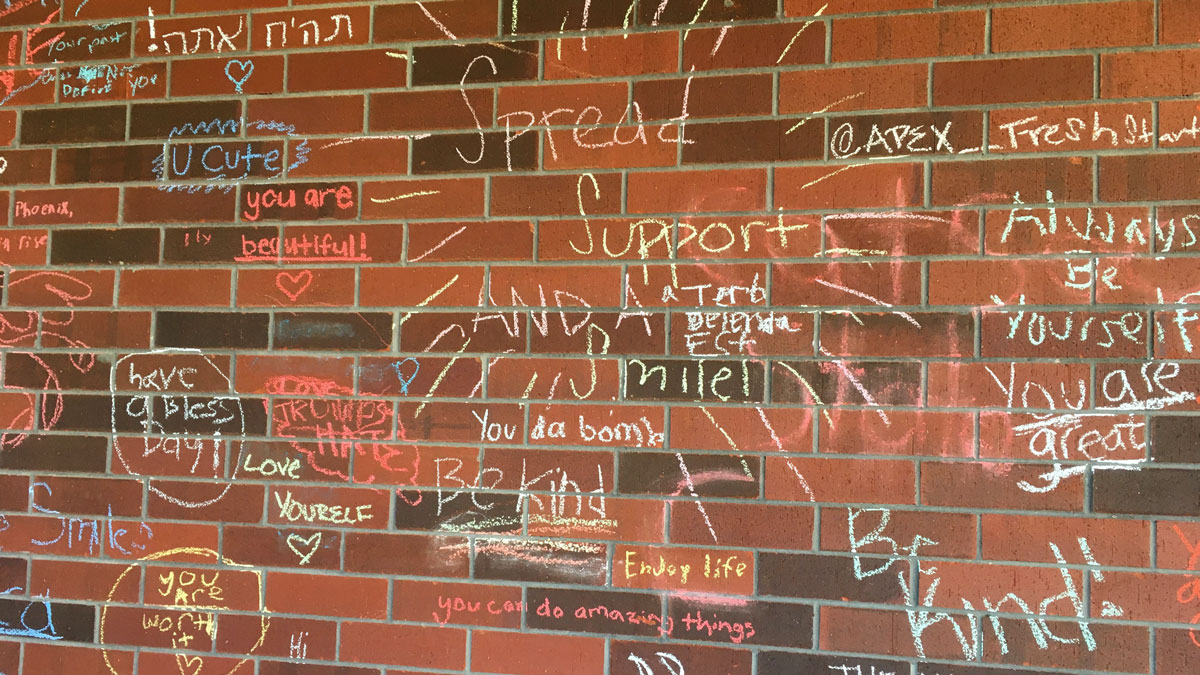 Your past
does NOT
Define you
!תה'ח אתה
U Cute
Phoenix,
rise
you are
beautiful!
have
a bless
Day!
Love
TRUMPS
HATE
LOVE
YOURELF
Smile
you
Are
worth
it
Hi
Spread
Support
AND A
Smile!
a Terb
Delenda
EST
You da bomb
Be Kind
Enjoy life
you can do amazing things
@APEX__FreshStart
Always
Be
Yourself
You are
great
Be
Kind